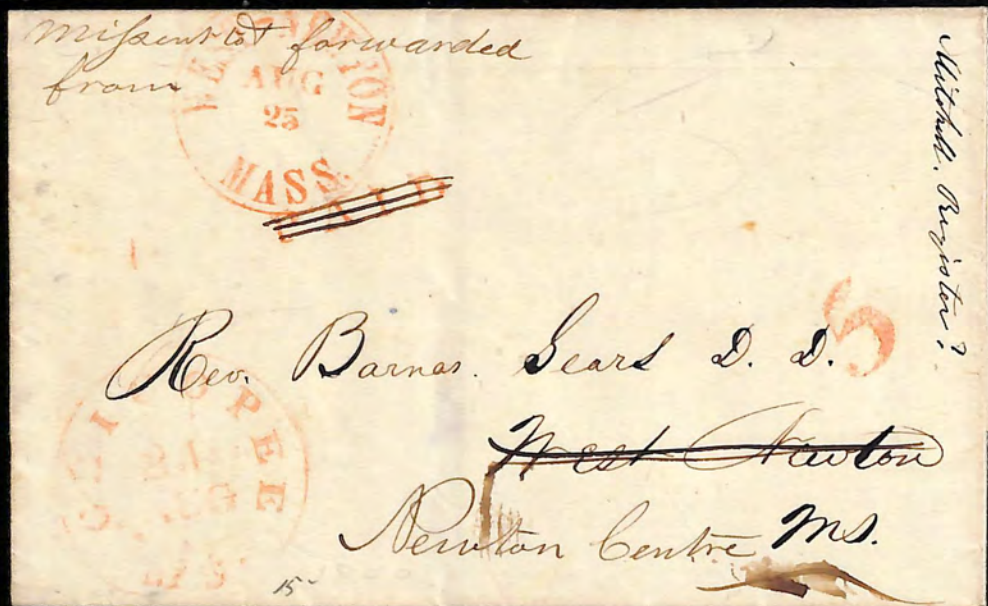 Missent & forwarded
from
WEST NEWTON
AUG
25
MASS.
PAID
Mitchell. Register?
5
Rev. Barnas. Sears D. D.
West Newton
Newton Centre Ms.
CHICOPEE
AUG
MS
15